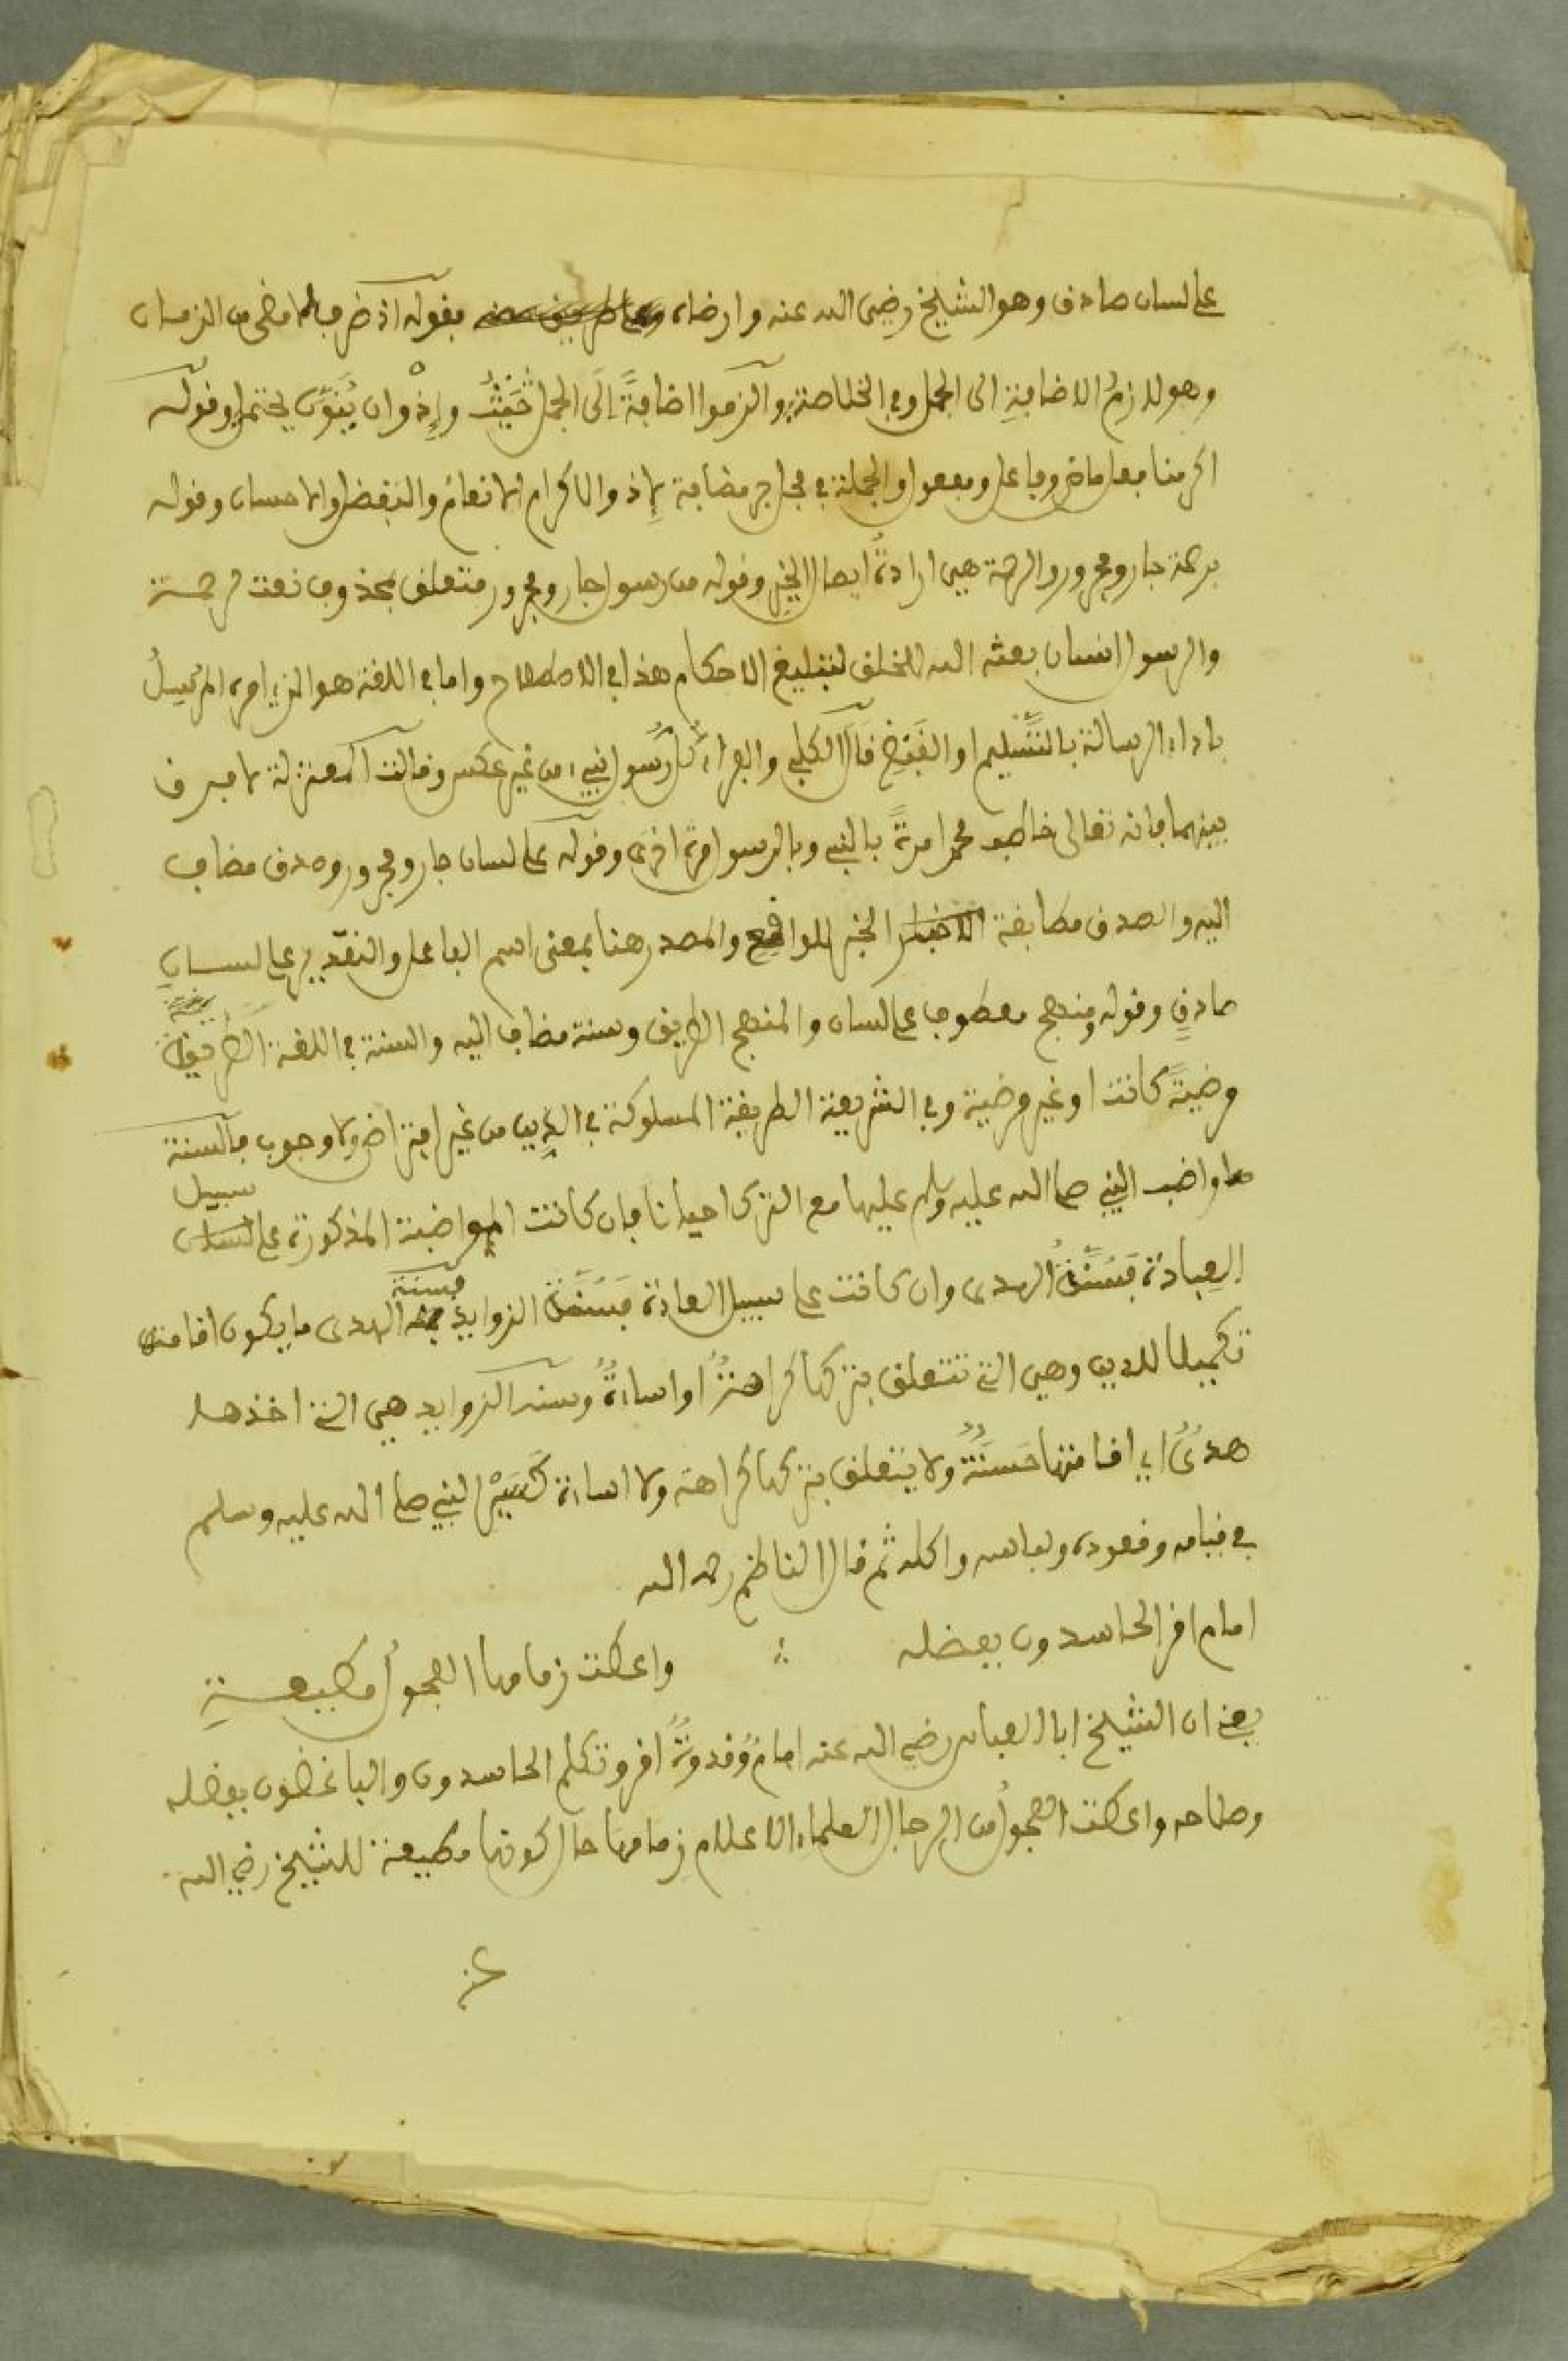 على لسان صادق وهو الشيخ رضي الله عنه وارضاه فقوله اذ ظرف لما مضى من الزمان
وهو لازم الاضافة الى الجمل وفي الخلاصة والزموا اضافةً إلَى الجمل حَيْثُ وإِذْ وان يُنَوَّن يحتمل وقوله
اكرمنا فعل ماض وفاعل ومفعول والجملة في محل جر مضافة لإذ والاكرام الانعام والتفضل والاحسان وقوله
برحمة جار ومجرور والرحمة هي ارادةُ ايصال الخير وقوله من رسول جار ومجرور متعلق بمحذوف نعت لرحمة
والرسول انسان بعثه الله للخلق لتبليغ الاحكام هذا في الاصطلاح واما في اللغة هو الذي امره المُرسِلُ
باداء الرسالة بالتَّسْليم او القَبْضِ قال الكلبي والفراء كلُّ رَسُول نبيء من غير عكس وقالت المعتزلة لا فرق
بينهما فانه تعالى خاطب محمدا مرةً بالنبي وبالرسول مرة اخرى وقوله على لسان جار ومجرور وصدق مضاف
اليه والصدق مطابقة الخبر للواقع والمصدر هنا بمعنى اسم الفاعل والتقدير على لسانِ
صادقٍ وقوله ومنهج معطوف على لسان والمنهج الطريق وسنة مضاف اليه والسنة في اللغة الطريقة
مرضيةً كانت او غير مرضية وفي الشريعة الطريقة المسلوكة في الدين من غير افتراض ولا وجوب فالسنة
ما واضب النبي صلى الله عليه وسلم عليها مع الترك احيانا فان كانت المواضبة المذكورة على سبيل
العِبادة فسُنَّةُ الهدى وان كانت على سبيل العادة فسُنَّة الزوايد فسنة الهدى ما يكون اقامتها
تكميلا للدين وهي التي تتعلق بتركها كراهةٌ او اساءةٌ وسنة الزوايد هي التي اخذها
هدىً اي اقامتها حَسَنَةٌ ولا يتعلق بتركها كراهة ولا اساءة كَسَيْرِ النبي صلى الله عليه وسلم
في قيامه وقعوده ولباسه واكله ثم قال الناظم رحمه الله
امام اقر الحاسدون بفضله ∴ واعطت زمامها الفحول مطيعةِ
يعني ان الشيخ ابا العباس رضي الله عنه امامٌ وقدوةٌ اقر وتكلم الحاسدون والباغضون بفضله
وصلاحه واعطت الفحولُ من الرجال العلماء الاعلام زمامها حال كونها مطيعة للشيخ رضي الله
عنه